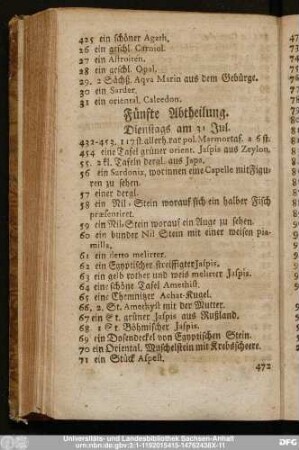 425 ein schöner Agath.
26 ein geschl. Carniol.
27 ein Astroiten.
28 ein geschl. Opal.
29. 2 Sächß. Aqva Marin aus dem Gebürge.
30 ein Sarder.
31 ein oriental. Calcedon.
Fünfte Abtheilung.
Dienstags am 31 Jul.
432-453. 117 st. allerh. rar pol. Marmortaf. a 6 ß.
454 eine Tafel grüner orient. Jaspis aus Zeylon.
55. 2 kl. Tafeln dergl. aus Japa.
56 ein Sardonix, worinnen eine Capelle mit Figu-
ren zu sehen.
57 einer dergl.
58 ein Nil-Stein worauf sich ein halber Fisch
præsentiret.
59 ein Nil-Stein worauf ein Auge zu sehen.
60 ein bunder Nil Stein mit einer weisen pia-
milla.
61 ein detto melirter.
62 ein Egyptischer streiffigter Jaspis.
63 ein gelb rother und weis melirter Jaspis.
64 eine schöne Tafel Amethist.
65 eine Chemnitzer Achat-Kugel.
66. 2. St. Amethyst mit der Mutter.
67 ein St. grüner Jaspis aus Rußland.
68. 1 St. Böhmischer Jaspis.
69 ein Dosendeckel von Egyptischen Stein.
70 ein Oriental. Muschelstein mit Krebsscheere.
71 ein Stück Aspest.
472
Universitäts- und Landesbibliothek Sachsen-Anhalt
urn:nbn:de:gbv:3:1-1192015415-14762438X-11
DFG